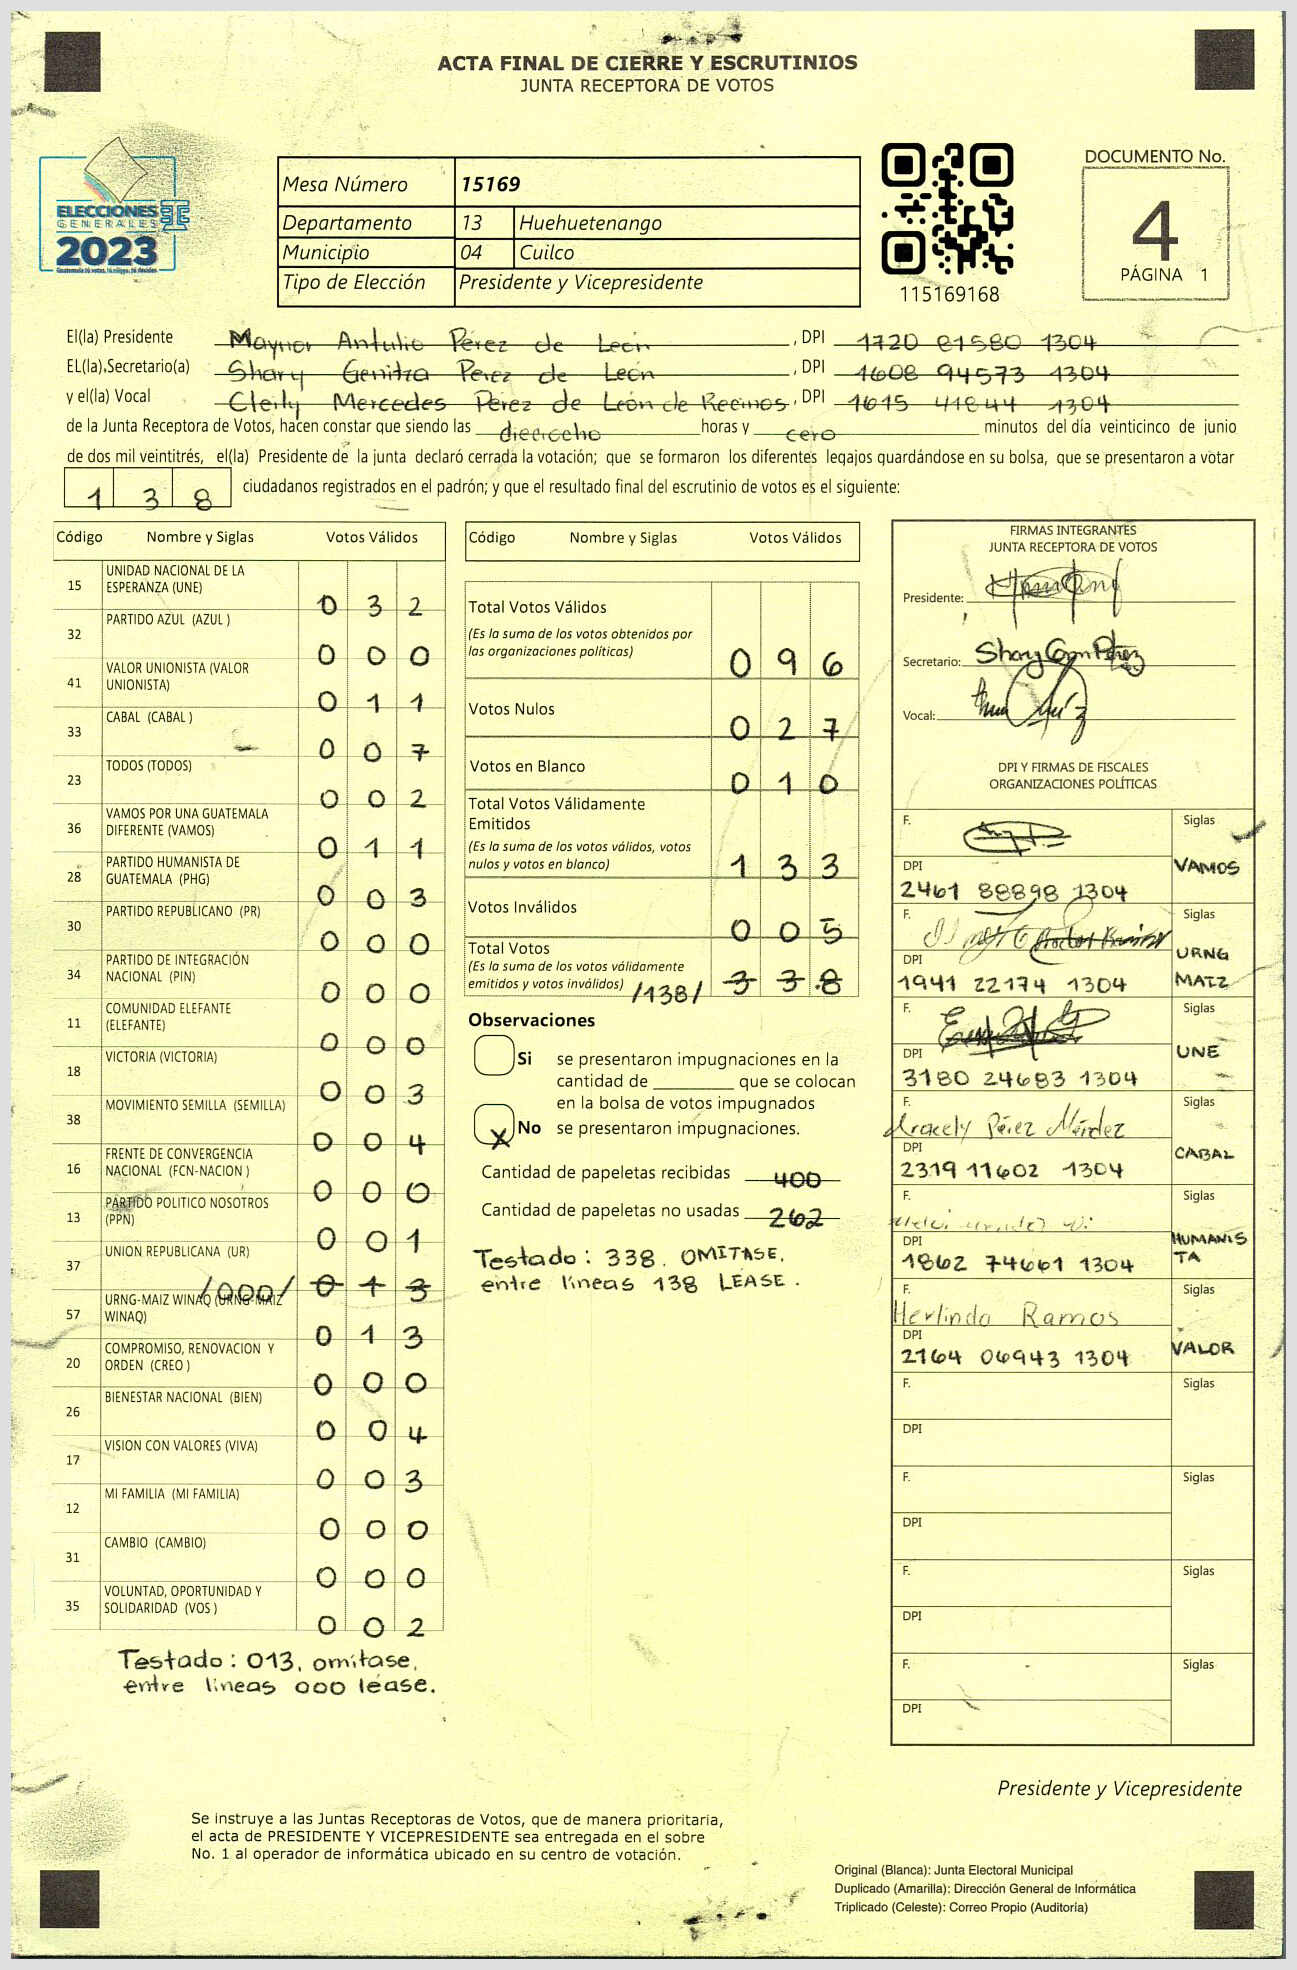 ACTA FINAL DE CIERRE Y ESCRUTINIOS
JUNTA RECEPTORA DE VOTOS
ELECCIONES
GENERALES
2023
Mesa Número 15169
Departamento 13 Huehuetenango
Municipio 04 Cuilco
Tipo de Elección Presidente y Vicepresidente
115169168
DOCUMENTO No.
4
PÁGINA 1
El(la) Presidente Maynor Antulio Pérez de León , DPI 1720 81580 1304
EL(la),Secretario(a) Shary Genitza Pérez de León , DPI 1608 94573 1304
y el(la) Vocal Cleily Mercedes Pérez de León de Recinos , DPI 1615 41844 1304
de la Junta Receptora de Votos, hacen constar que siendo las dieciocho horas y cero minutos del día veinticinco de junio
de dos mil veintitrés, el(la) Presidente de la junta declaró cerrada la votación; que se formaron los diferentes legajos guardándose en su bolsa, que se presentaron a votar
1 3 8 ciudadanos registrados en el padrón; y que el resultado final del escrutinio de votos es el siguiente:
Código Nombre y Siglas Votos Válidos
15 UNIDAD NACIONAL DE LA
ESPERANZA (UNE) 0 3 2
32 PARTIDO AZUL (AZUL ) 0 0 0
41 VALOR UNIONISTA (VALOR
UNIONISTA) 0 1 1
33 CABAL (CABAL ) 0 0 7
23 TODOS (TODOS) 0 0 2
36 VAMOS POR UNA GUATEMALA
DIFERENTE (VAMOS) 0 1 1
28 PARTIDO HUMANISTA DE
GUATEMALA (PHG) 0 0 3
30 PARTIDO REPUBLICANO (PR) 0 0 0
34 PARTIDO DE INTEGRACIÓN
NACIONAL (PIN) 0 0 0
11 COMUNIDAD ELEFANTE
(ELEFANTE) 0 0 0
18 VICTORIA (VICTORIA) 0 0 3
38 MOVIMIENTO SEMILLA (SEMILLA) 0 0 4
16 FRENTE DE CONVERGENCIA
NACIONAL (FCN-NACION ) 0 0 0
13 PARTIDO POLITICO NOSOTROS
(PPN) 0 0 1
37 UNION REPUBLICANA (UR) /000/ 0 1 3
57 URNG-MAIZ WINAQ (URNG-MAIZ
WINAQ) 0 1 3
20 COMPROMISO, RENOVACION Y
ORDEN (CREO ) 0 0 0
26 BIENESTAR NACIONAL (BIEN) 0 0 4
17 VISION CON VALORES (VIVA) 0 0 3
12 MI FAMILIA (MI FAMILIA) 0 0 0
31 CAMBIO (CAMBIO) 0 0 0
35 VOLUNTAD, OPORTUNIDAD Y
SOLIDARIDAD (VOS ) 0 0 2
Testado: 013, omitase.
entre lineas 000 léase.
Código Nombre y Siglas Votos Válidos
Total Votos Válidos
(Es la suma de los votos obtenidos por
las organizaciones políticas) 0 9 6
Votos Nulos 0 2 7
Votos en Blanco 0 1 0
Total Votos Válidamente
Emitidos
(Es la suma de los votos válidos, votos
nulos y votos en blanco) 1 3 3
Votos Inválidos 0 0 5
Total Votos
(Es la suma de los votos válidamente
emitidos y votos inválidos) /138/ 3 3 8
Observaciones
Si se presentaron impugnaciones en la
cantidad de ________ que se colocan
en la bolsa de votos impugnados
X No se presentaron impugnaciones.
Cantidad de papeletas recibidas 400
Cantidad de papeletas no usadas 262
Testado: 338. OMITASE.
entre líneas 138 LEASE.
FIRMAS INTEGRANTES
JUNTA RECEPTORA DE VOTOS
Presidente:
Secretario: Shary
Vocal:
DPI Y FIRMAS DE FISCALES
ORGANIZACIONES POLÍTICAS
F. Siglas
DPI VAMOS
2461 88898 1304
F. Siglas
DPI URNG
1941 22174 1304 MAIZ
F. Siglas
DPI UNE
3180 24683 1304
F. Siglas
Aracely Pérez Méndez
DPI CABAL
2319 11602 1304
F. Siglas
DPI HUMANIS
1862 74661 1304 TA
F. Siglas
Herlindo Ramos
DPI VALOR
2164 06943 1304
F. Siglas
DPI
F. Siglas
DPI
F. Siglas
DPI
F. Siglas
DPI
Presidente y Vicepresidente
Se instruye a las Juntas Receptoras de Votos, que de manera prioritaria,
el acta de PRESIDENTE Y VICEPRESIDENTE sea entregada en el sobre
No. 1 al operador de informática ubicado en su centro de votación.
Original (Blanca): Junta Electoral Municipal
Duplicado (Amarilla): Dirección General de Informática
Triplicado (Celeste): Correo Propio (Auditoría)